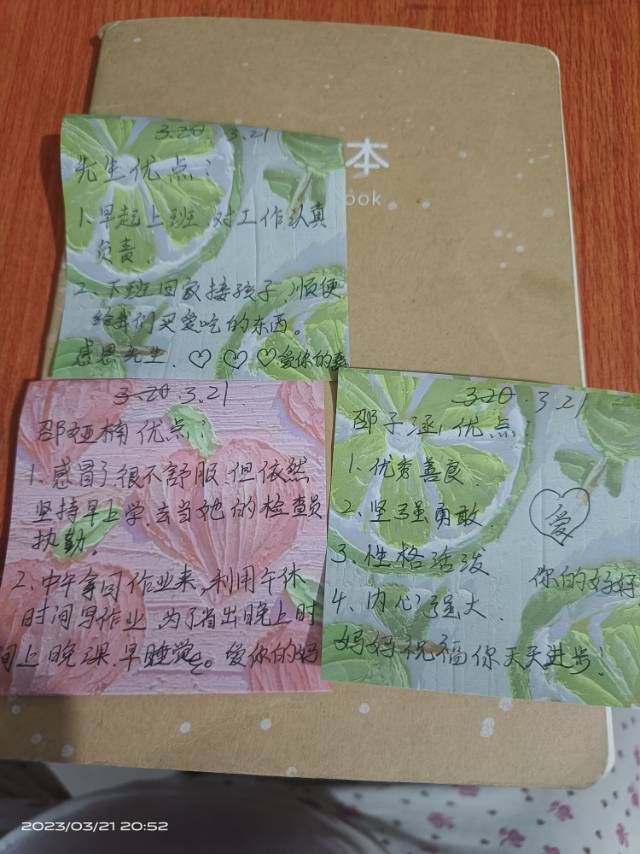 本
ook
3.20 3.21
先生优点:
1.早起上班 对工作认真
负责.
2.下班回家接孩子,顺便
给我们买爱吃的东西。
感恩先生.♡♡♡爱你的
3.20.3.21
邵娅楠优点:
1.感冒了很不舒服.但依然
坚持早上学.去当她的检查员
执勤.
2.中午拿回作业来,利用午休
时间写作业.为了省出晚上时
间上晚课.早睡觉。爱你的妈
3.20.3.21
邵子涵优点:
1.优秀善良.
2.坚强勇敢.
爱
3.性格活泼
你的好好
4.内心强大.
妈妈祝福你天天进步!
2023/03/21 20:52